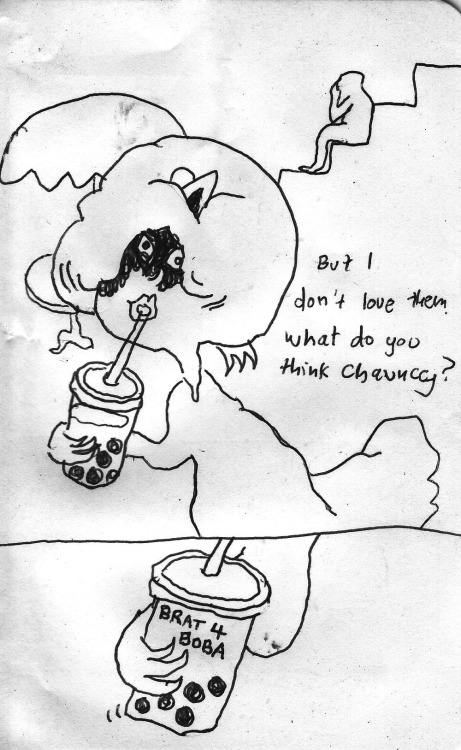 But I
don't love them
what do you
think Chauncey?
BRAT 4
BOBA